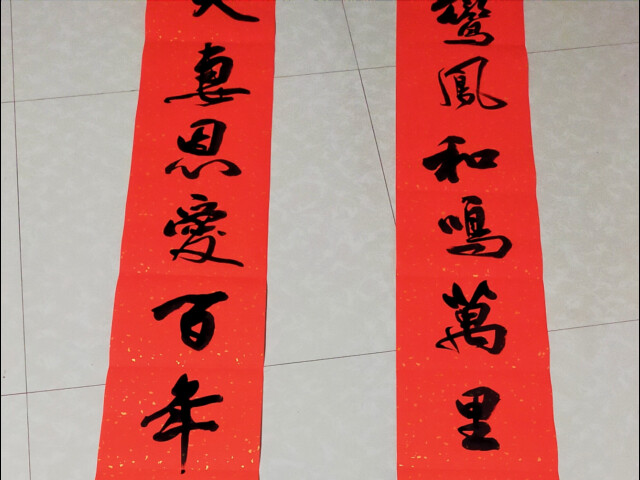 鸞鳳和鳴萬里
夫妻恩愛百年